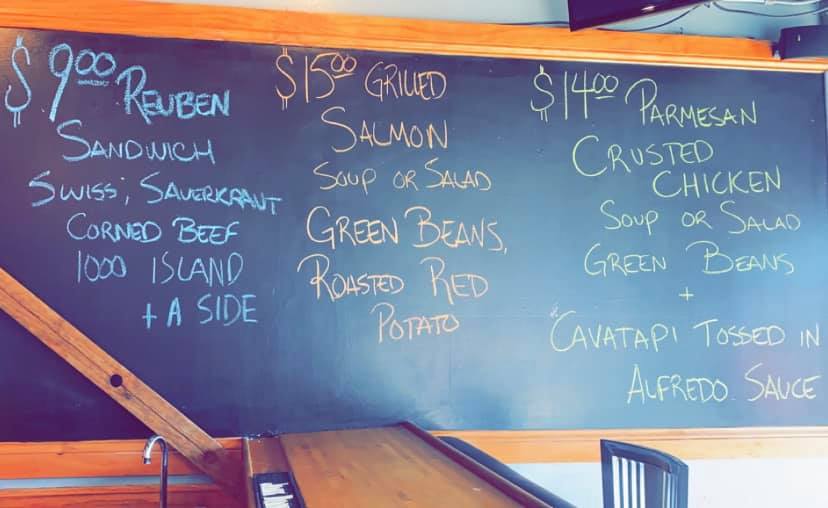 $9.00 REUBEN
SANDWICH
SWISS, SAUERKRAUT
CORNED BEEF
1000 ISLAND
+ A SIDE
$15.00 GRILLED
SALMON
SOUP OR SALAD
GREEN BEANS,
ROASTED RED
POTATO
$14.00 PARMESAN
CRUSTED
CHICKEN
SOUP OR SALAD
GREEN BEANS
+
CAVATAPI TOSSED IN
ALFREDO SAUCE